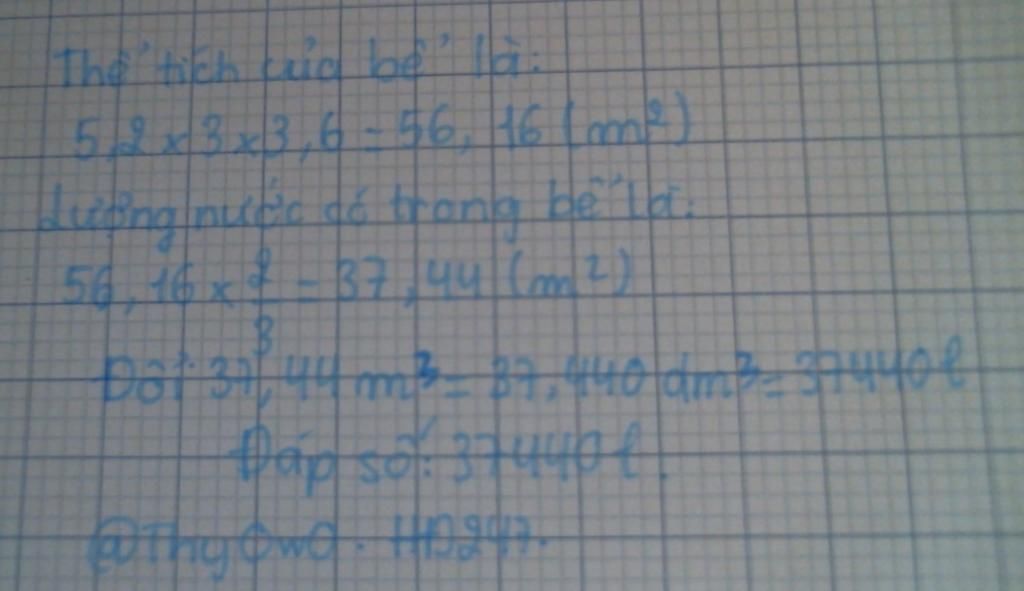 Thể tích của bể là:
5,2 x 3 x 3,6 = 56, 16 (m²)
Lượng nước có trong bể là:
56, 16 x 2/3 = 37, 44 (m²)
Đổi: 37, 44 m³ = 37, 440 dm³ = 37440 l
Đáp số: 37440 l.
@ThyOwO. HD247.